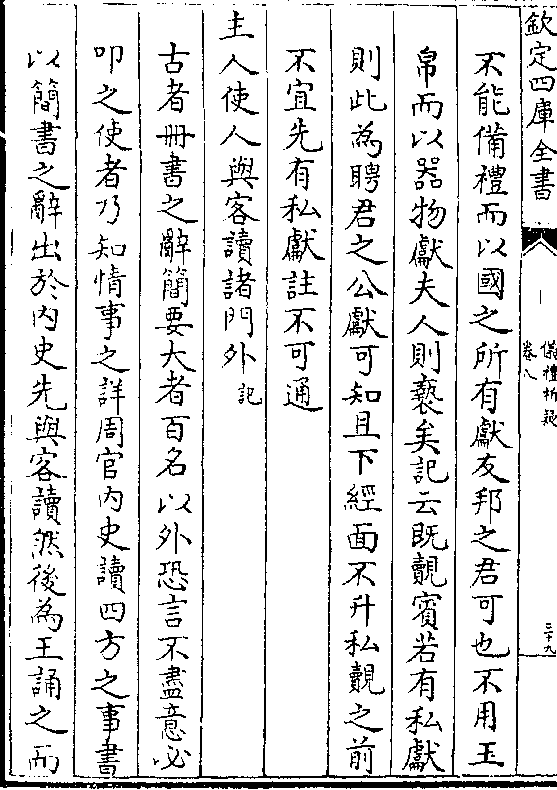 欽定四庫全書
儀禮析疑
卷八
三十九
不能備禮而以國之所有獻友邦之君可也不用玉
帛而以器物獻夫人則褻矣記云既覿賓若有私獻
則此為聘君之公獻可知且下經面不升私覿之前
不宜先有私獻註不可通
主人使人與客讀諸門外記
古者冊書之辭簡要大者百名以外恐言不盡意必
叩之使者乃知情事之詳周官內史讀四方之事書
以簡書之辭出於內史先與客讀然後為王誦之而